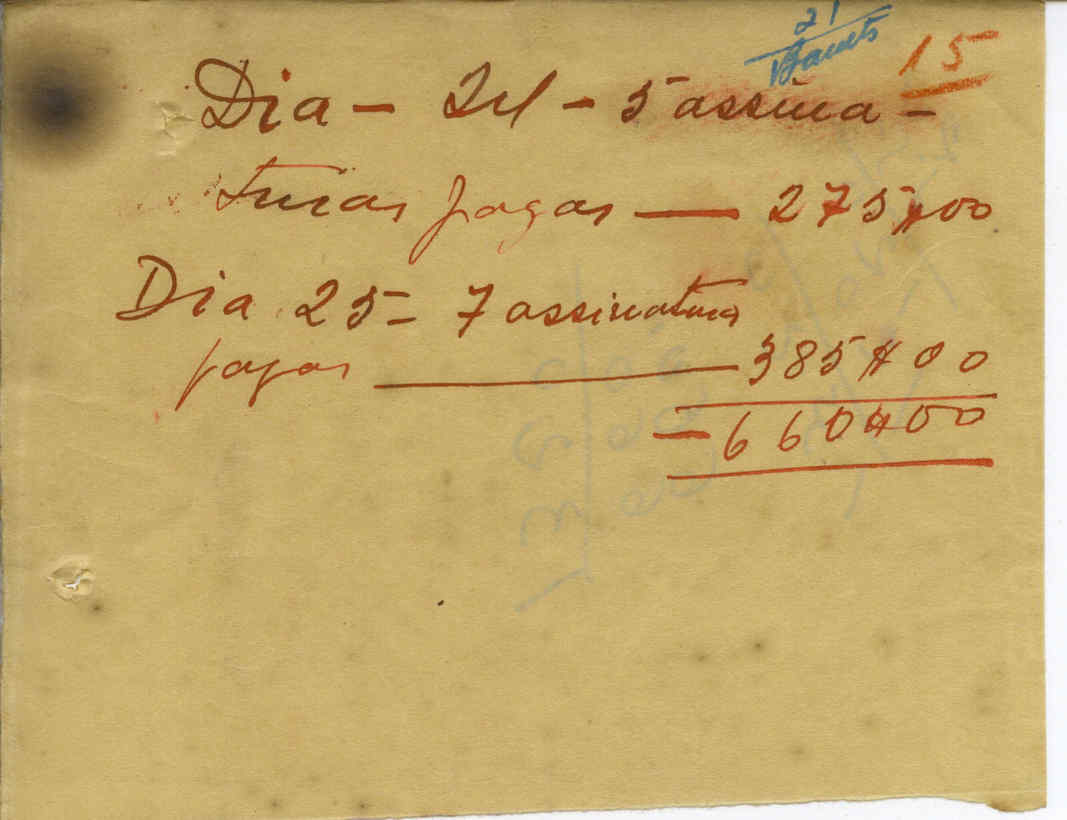 21
15
Dia - 24 - 5 assina-
turas pagas — 275$00
Dia 25 - 7 assinaturas
pagas — 385$00
— 660$00